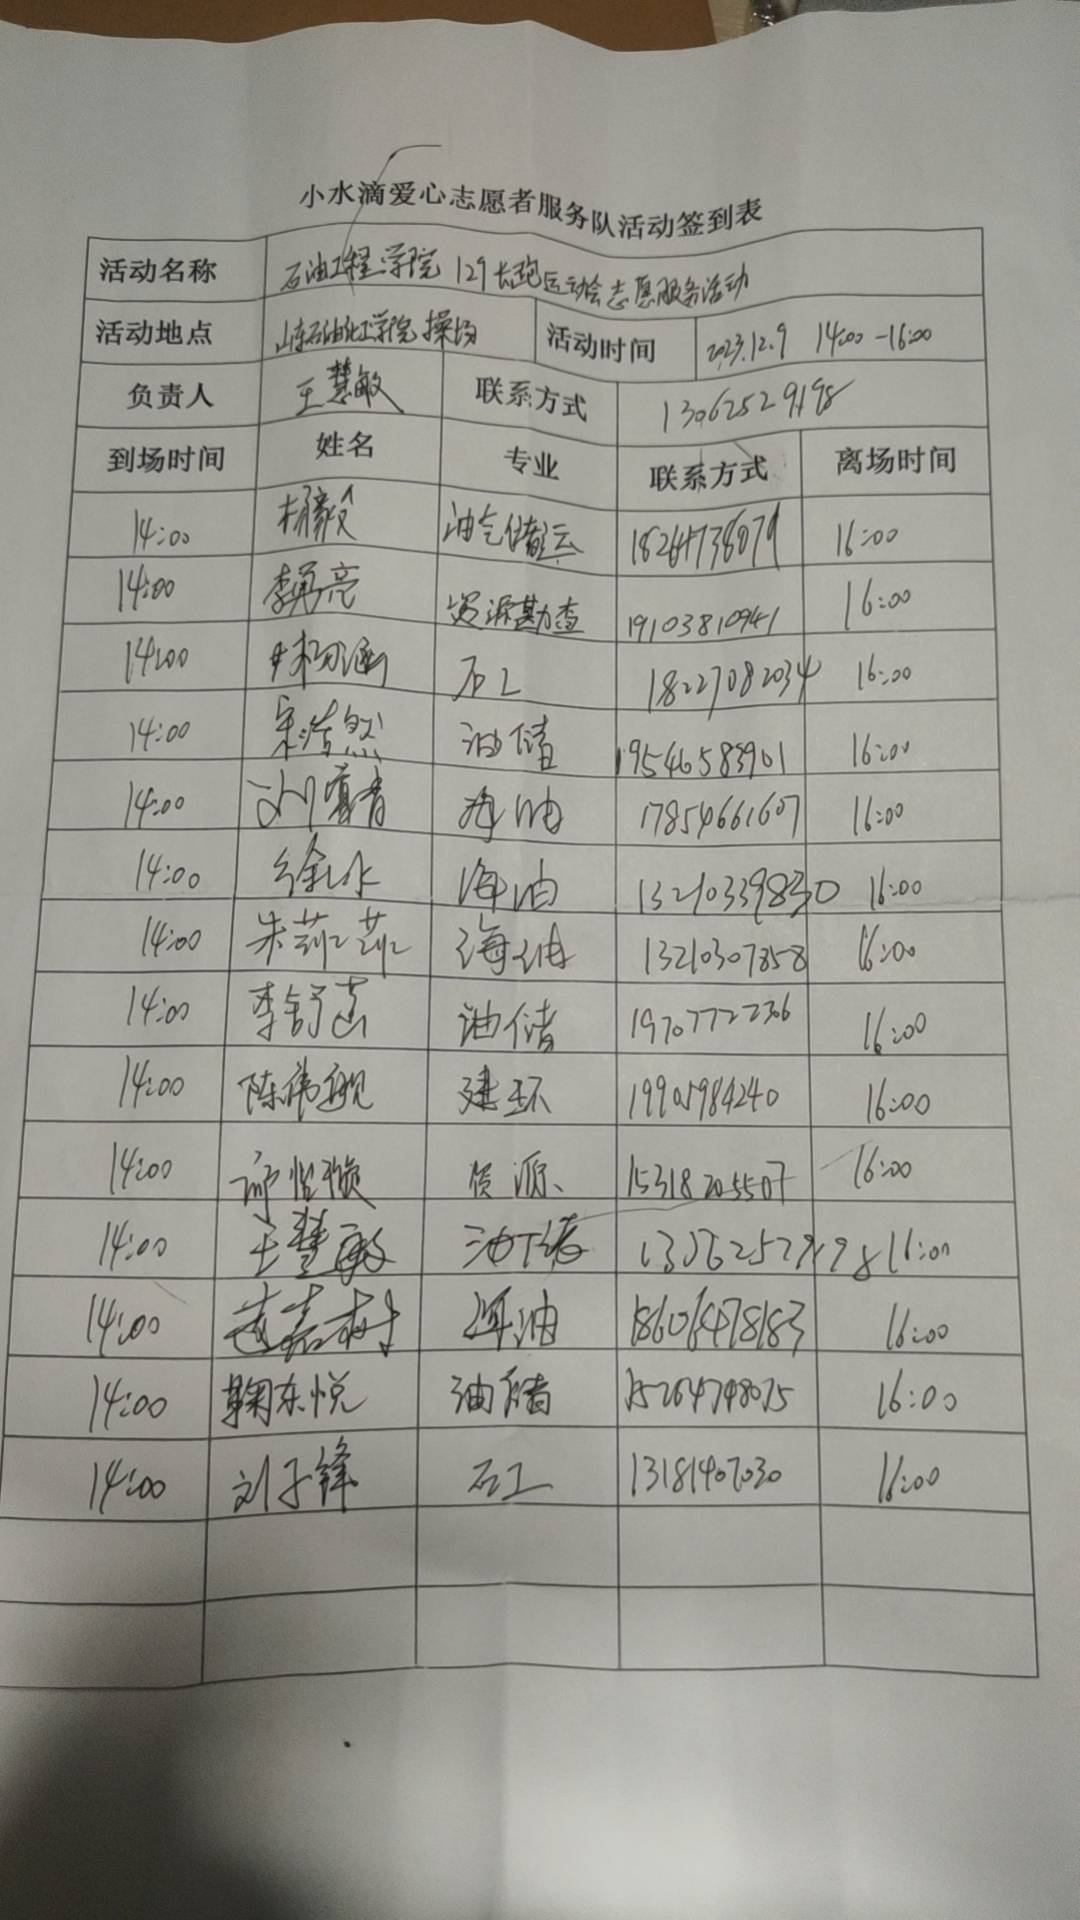 小水滴爱心志愿者服务队活动签到表
活动名称 石油工程学院 129长跑运动会志愿服务活动
活动地点 山东石油化工学院操场 活动时间 2023.12.9 14:00-16:00
负责人 王慧敏 联系方式 13062529198
到场时间 姓名 专业 联系方式 离场时间
14:00 杨毅 油气储运 16:00
14:00 李勇亮 资源勘查 19103810941 16:00
14:00 石工 18227082034 16:00
14:00 宋浩然 油储 19546583901 16:00
14:00 海油 17854661607 16:00
14:00 徐冰 海油 13210339830 16:00
14:00 朱菲菲 海油 13210307858 16:00
14:00 李舒 油储 19707772236 16:00
14:00 陈伟靓 建环 19905984240 16:00
14:00 资源 15318205507 16:00
14:00 王慧敏 油储 13062529198 16:00
14:00 袁嘉树 海油 18606478183 16:00
14:00 鞠东悦 油储 15264748075 16:00
14:00 刘子锋 石工 13181407030 16:00